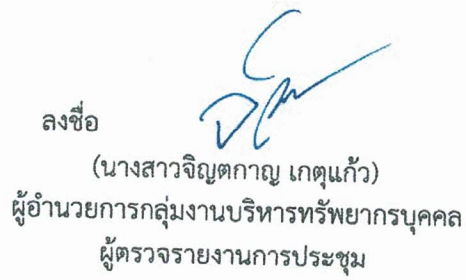 ลงชื่อ
(นางสาวจิญตกาญ เกตุแก้ว)
ผู้อำนวยการกลุ่มงานบริหารทรัพยากรบุคคล
ผู้ตรวจรายงานการประชุม